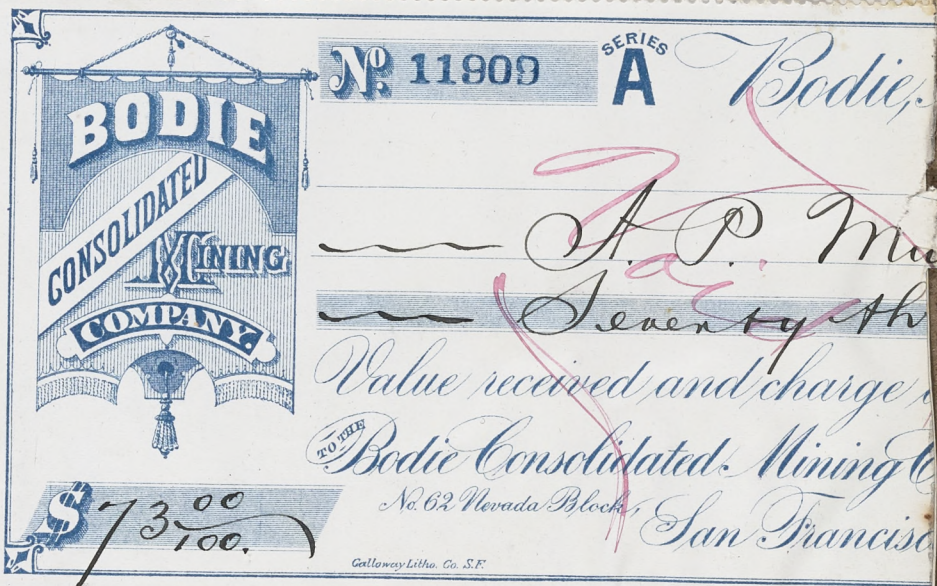 BODIE
CONSOLIDATED
MINING
COMPANY.
No. 11909
SERIES
A
Bodie,
A. P. Mu
Seventy th
Value received and charge
TO THE
Bodie Consolidated Mining C
No. 62 Nevada Block,
San Francisc
$ 73 00/100.
Galloway Litho. Co. S.F.